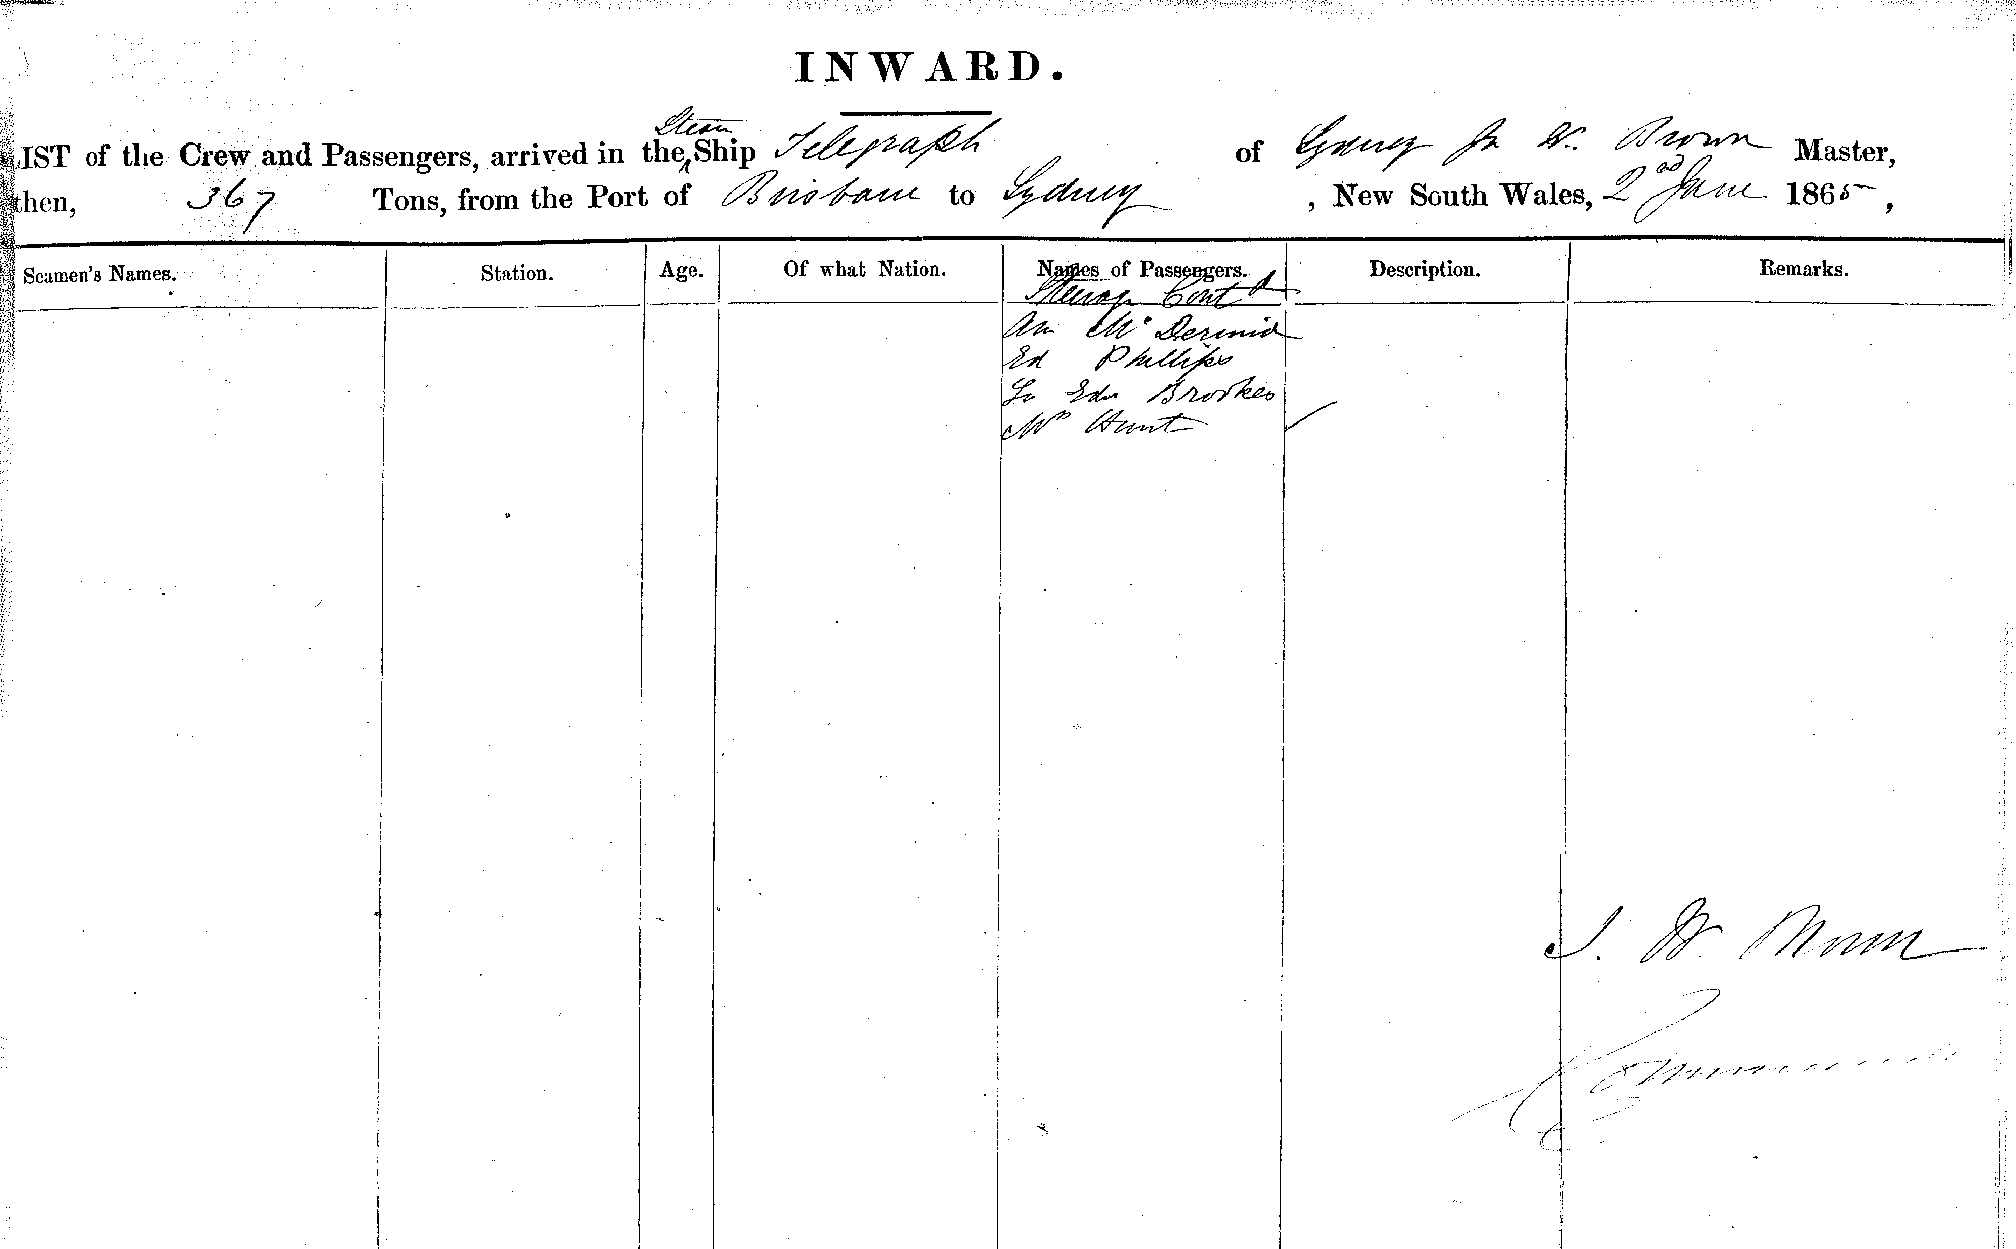 INWARD.
Steam
LIST of the Crew and Passengers, arrived in the Ship Telegraph of Sydney Jn W. Brown Master,
then, 367 Tons, from the Port of Brisbane to Sydney, New South Wales, 2nd June 1865,
Seamen's Names. Station. Age. Of what Nation. Names of Passengers. Description. Remarks.
Steerage Contd
McDermid
Ed Phillips
Brookes
Hunt
J. W. Brown